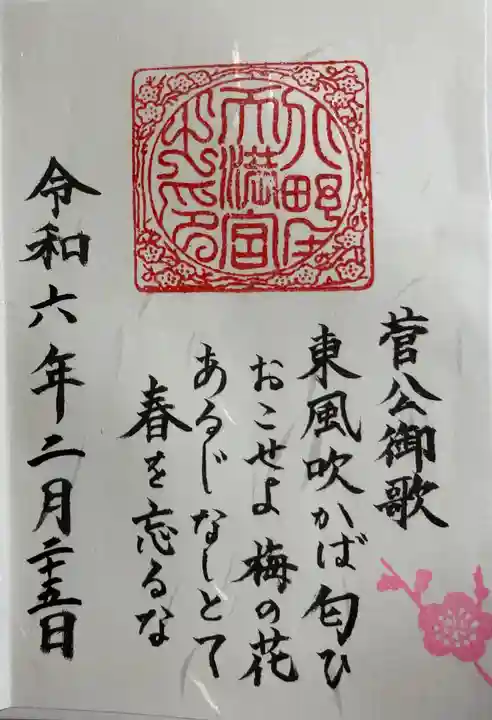 菅公御歌
東風吹かば匂ひ
おこせよ梅の花
あるじなしとて
春を忘るな
令和六年二月二十五日